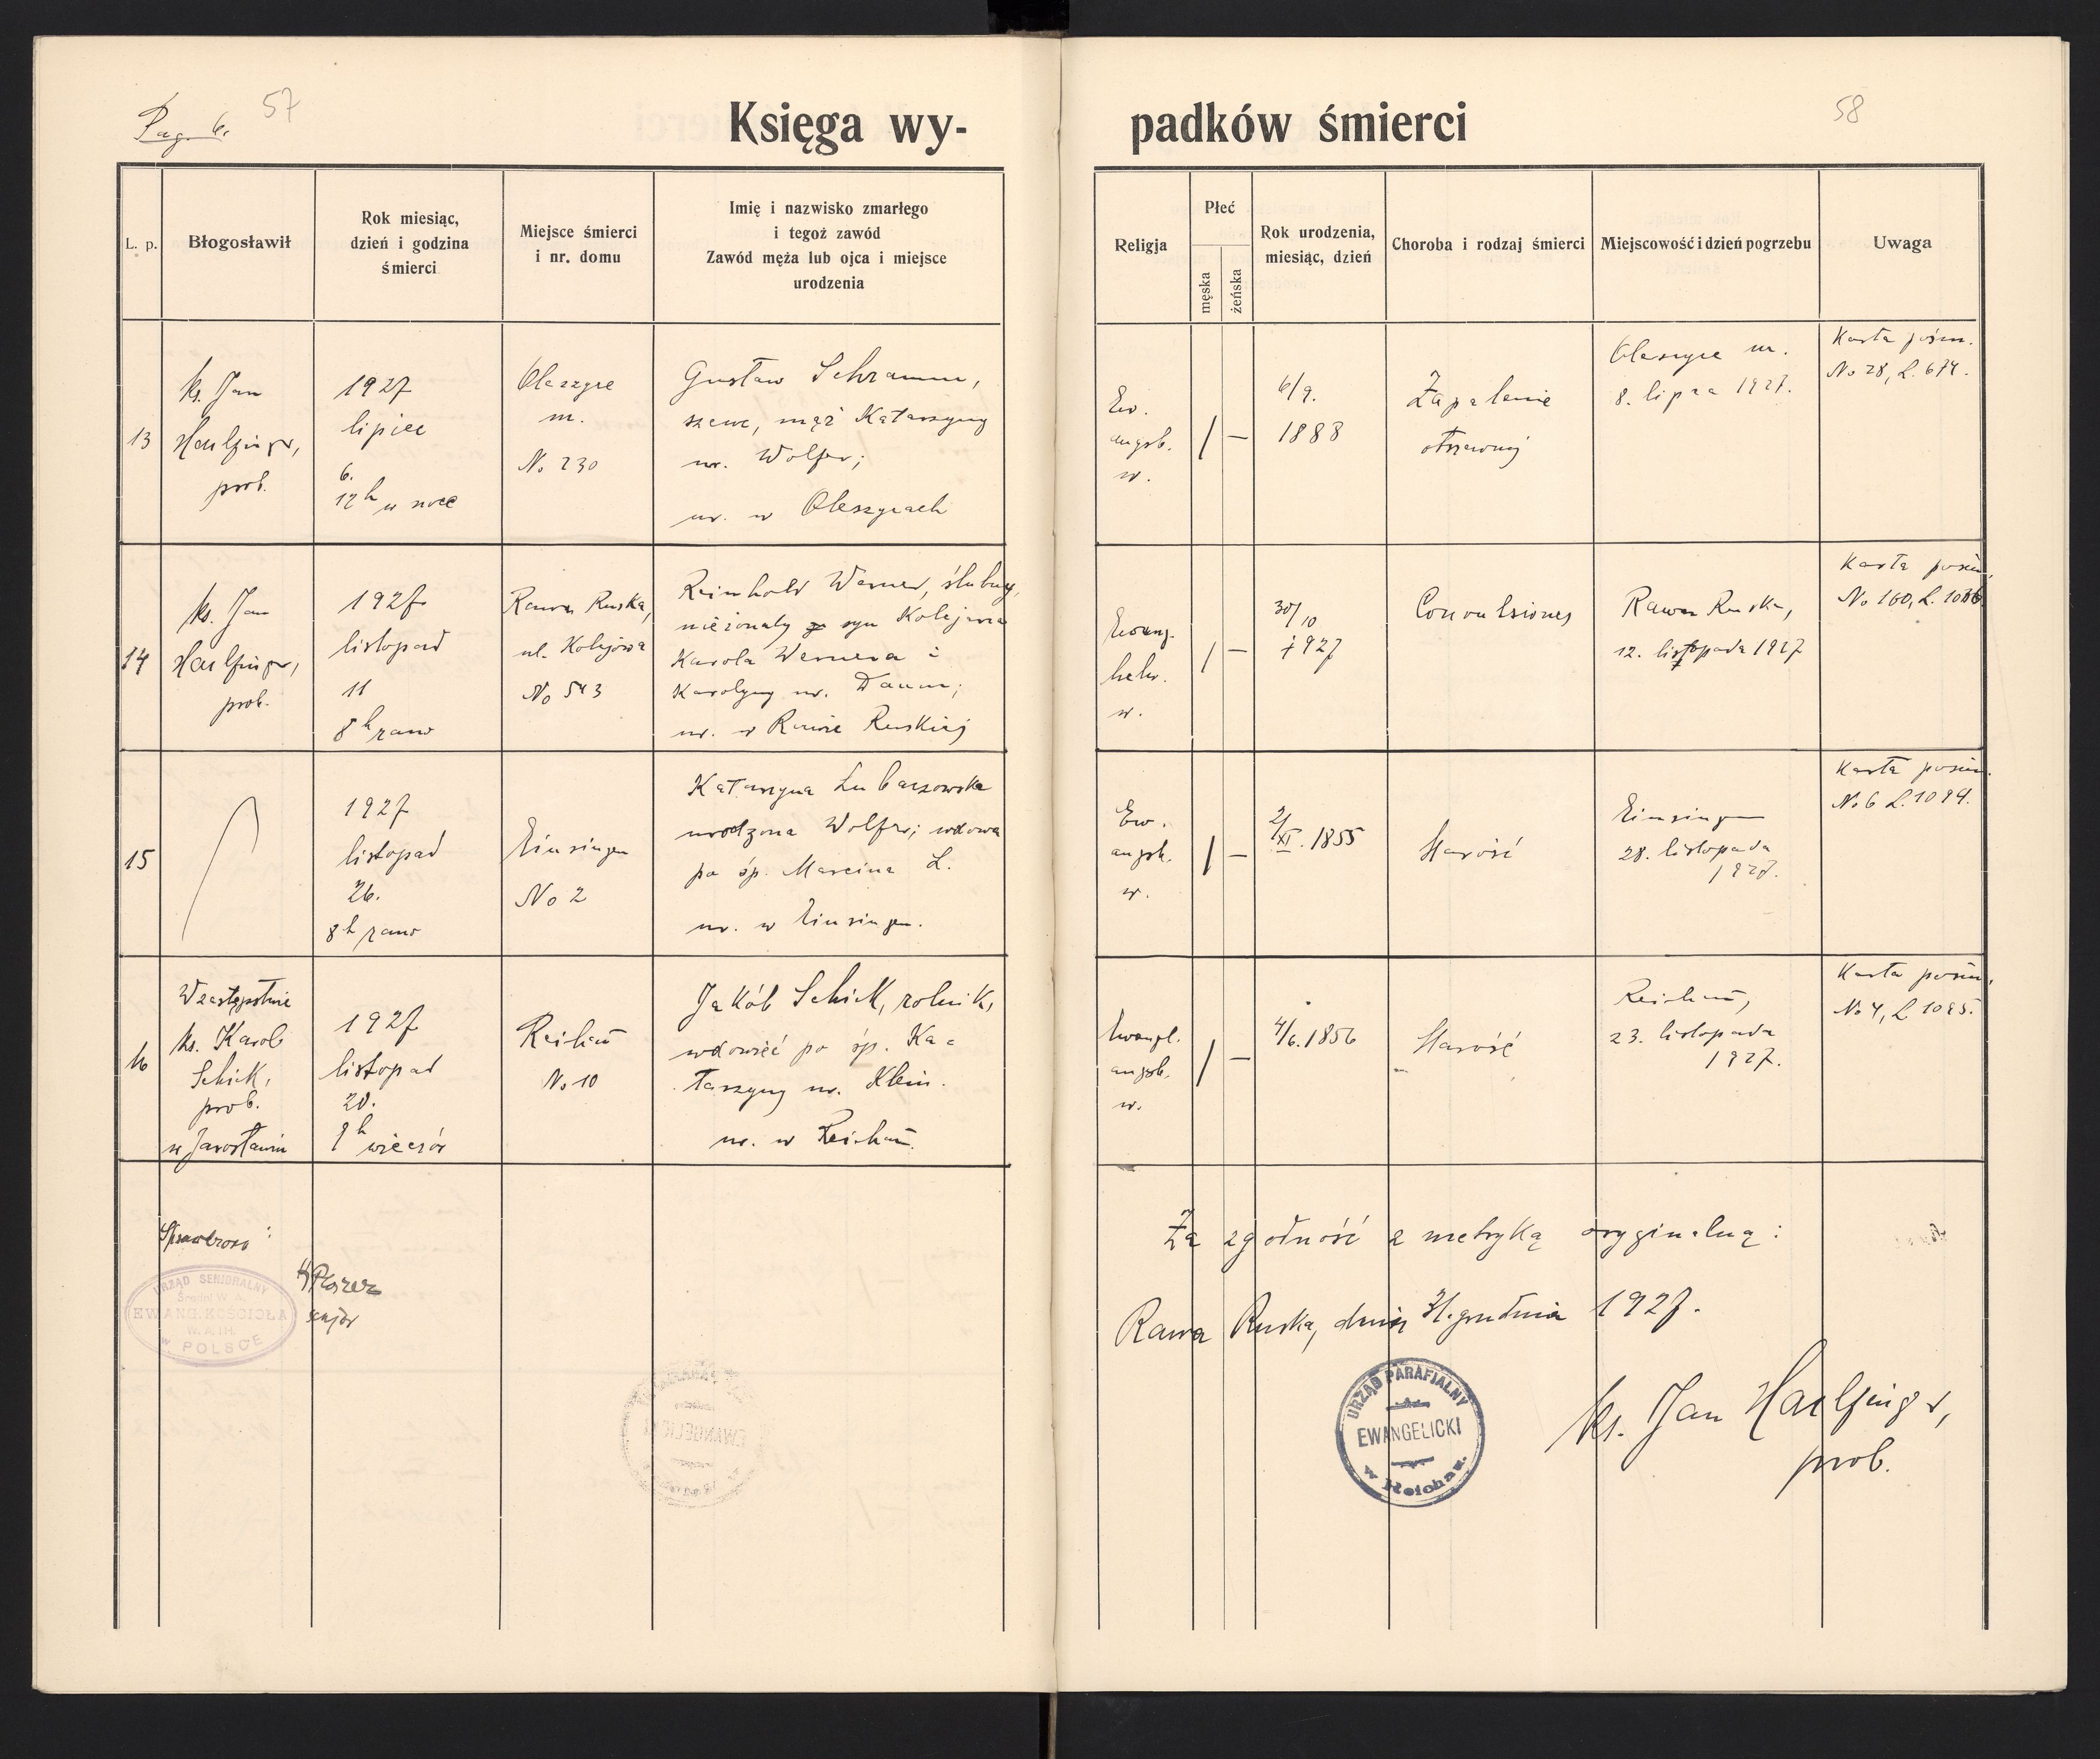 Pag. 6.
57
Księga wy-
padków śmierci
58
L. p.
Błogosławił
Rok miesiąc,
dzień i godzina
śmierci
Miejsce śmierci
i nr. domu
Imię i nazwisko zmarłego
i tegoż zawód
Zawód męża lub ojca i miejsce
urodzenia
Religja
Płeć
męska
żeńska
Rok urodzenia,
miesiąc, dzień
Choroba i rodzaj śmierci
Miejscowość i dzień pogrzebu
Uwaga
13
ks. Jan
Haelfinger,
prob.
1927
lipiec
6.
12h w noce
Oleszyce
m.
No 230
Gustaw Schramm,
szewc, mąż Katarzyny
ur. Wolfer;
ur. w Oleszycach
Ew.
augsb.
w.
/
—
6/9.
1888
Zapalenie
otrzewnej
Oleszyce m.
8. lipca 1927.
Karta pośm.
No 28, L. 674.
14
ks. Jan
Haelfinger,
prob.
1927
listopad
11
8h rano
Rawa Ruska,
ul. Kolejowa
No 543
Reinhold Werner, ślubny,
nieżonaty syn Kolejarza
Karola Wernera i
Karoliny ur. Daum;
ur. w Rawie Ruskiej
Ewang.
helw.
w.
/
—
30/10
1927
Convulsiones
Rawa Ruska,
12. listopada 1927
Karta pośm.
No 160, L.
15
1927
listopad
26.
8h rano
Einsingen
No 2
Katarzyna Lubaszowska
urodzona Wolfer; wdowa
po śp. Marcinie L.
ur. w Einsingen.
Ew.
augsb.
w.
/
—
2/XI. 1855
Starość
Einsingen
28. listopada
1927.
Karta pośm.
No 6 L. 1094.
16
W zastępstwie
ks. Karol
Schick,
prob.
w Jarosławiu
1927
listopad
20.
9h wieczór
Reichau
No 10
Jakób Schick, rolnik,
wdowiec po śp. Ka-
tarzyny ur. Klein.
ur. w Reichau.
Ewangel.
augsb.
w.
/
—
4/6. 1856
Starość
Reichau,
23. listopada
1927.
Karta pośm.
No 4, L. 1095.
Sprawdzono:
senjor
URZĄD SENIORALNY
EWANG. KOŚCIOŁA
W. A. I H.
w POLSCE
Za zgodność z metryką oryginalną:
Rawa Ruska, dnia 31. grudnia 1927.
URZĄD PARAFJALNY
EWANGELICKI
w Reichau.
ks. Jan Haelfinger,
prob.